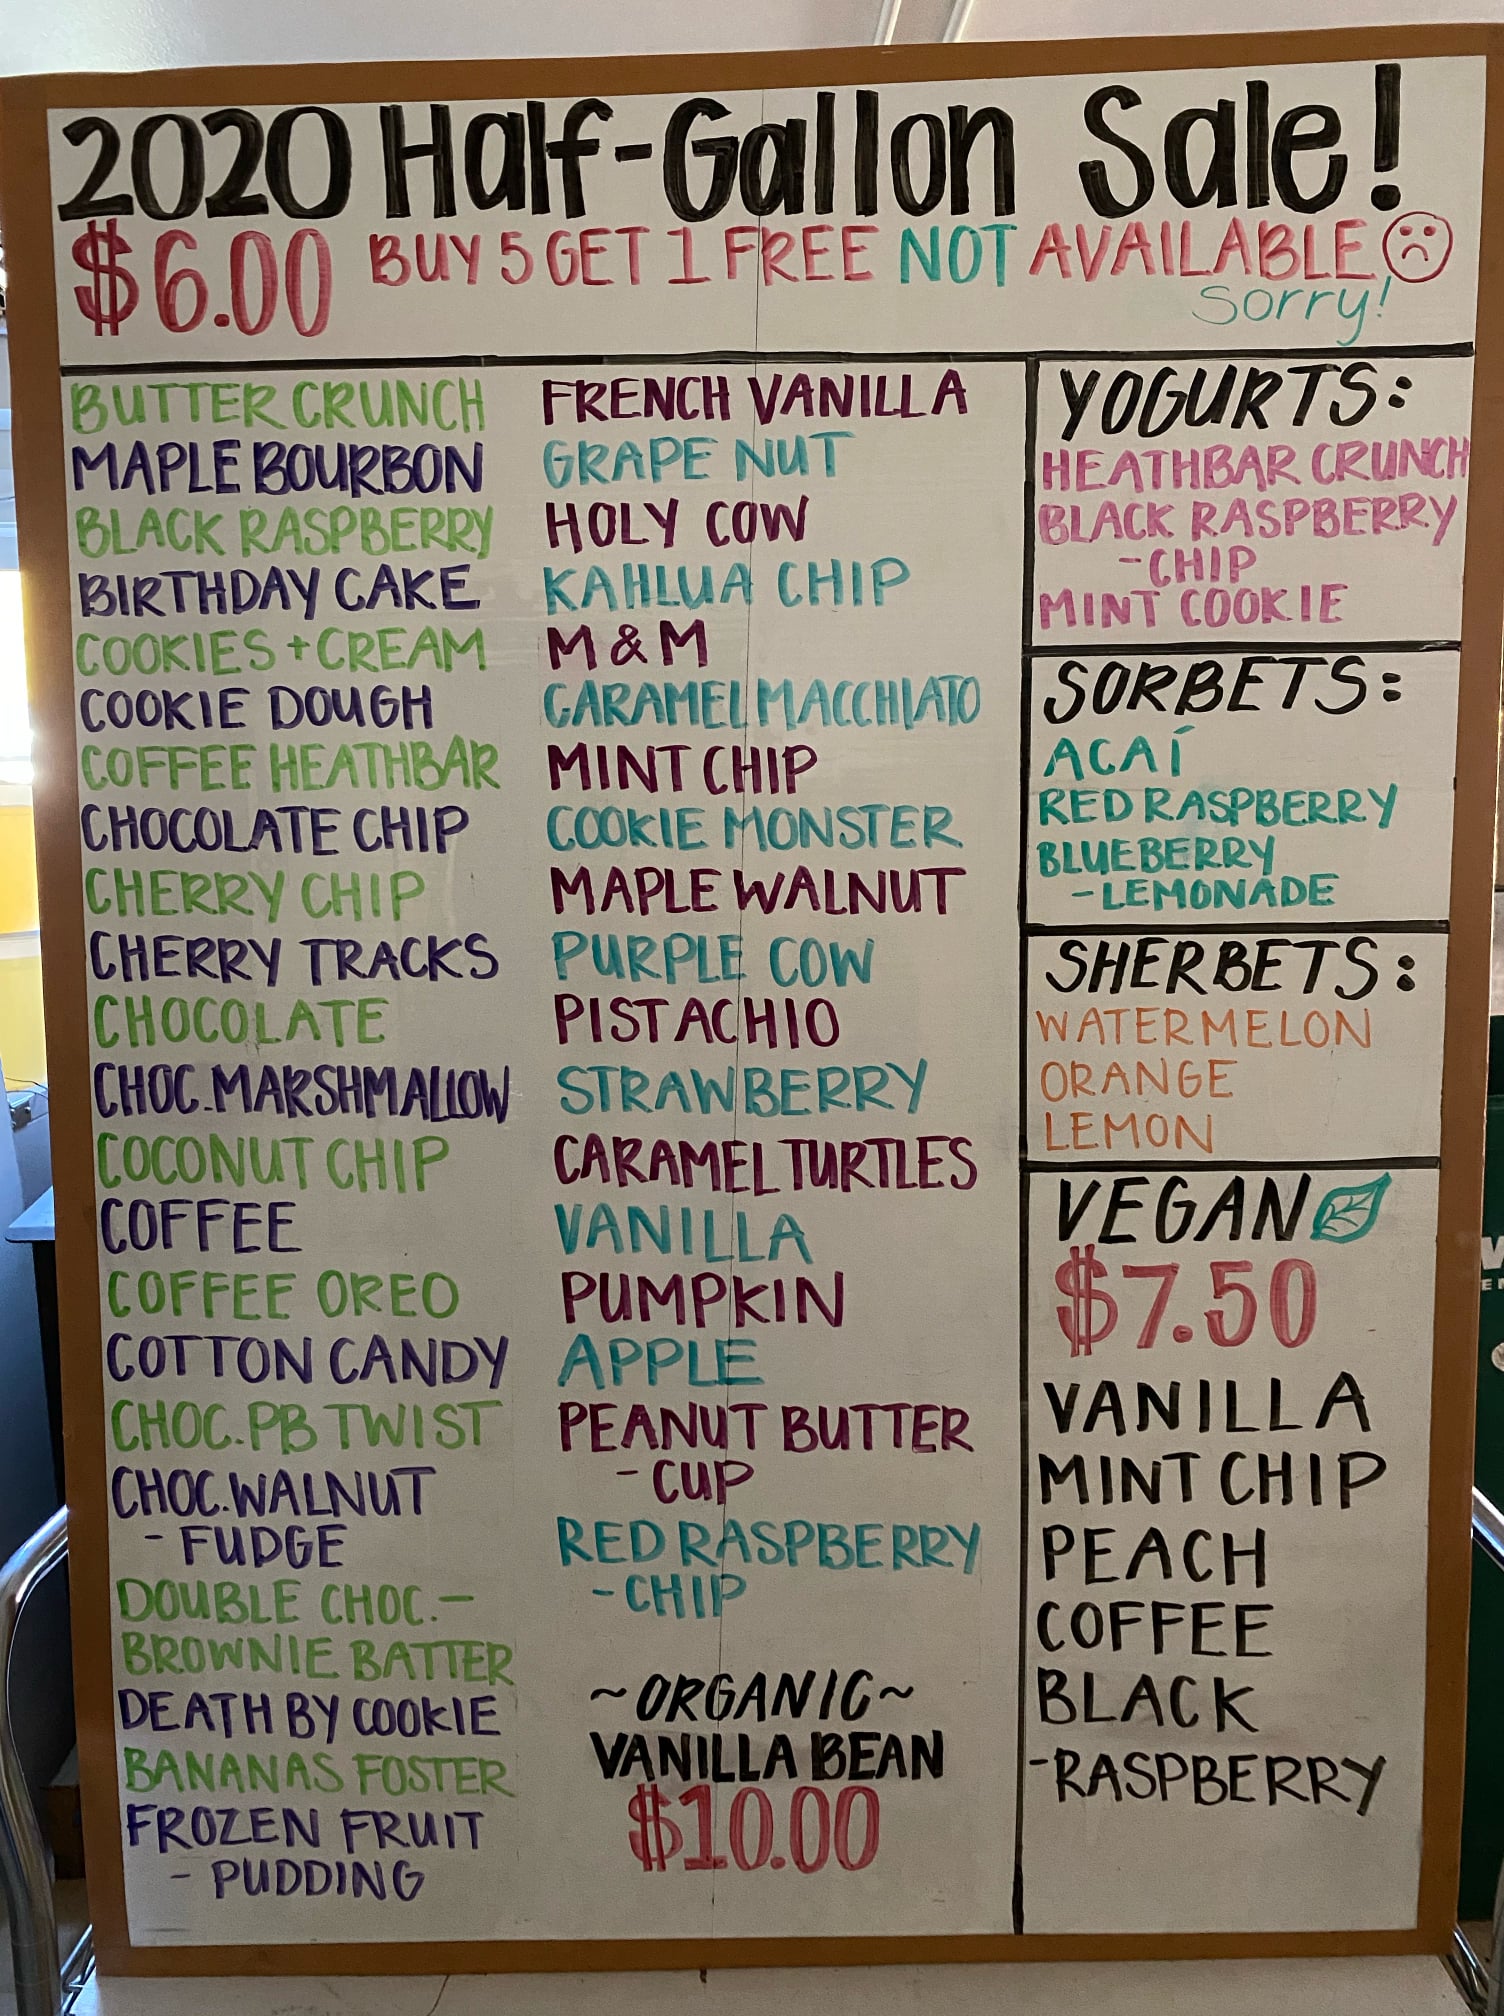 2020 Half-Gallon Sale!
$6.00 BUY 5 GET 1 FREE NOT AVAILABLE
Sorry!
BUTTER CRUNCH
MAPLE BOURBON
BLACK RASPBERRY
BIRTHDAY CAKE
COOKIES + CREAM
COOKIE DOUGH
COFFEE HEATHBAR
CHOCOLATE CHIP
CHERRY CHIP
CHERRY TRACKS
CHOCOLATE
CHOC. MARSHMALLOW
COCONUT CHIP
COFFEE
COFFEE OREO
COTTON CANDY
CHOC. PB TWIST
CHOC. WALNUT
- FUDGE
DOUBLE CHOC. -
BROWNIE BATTER
DEATH BY COOKIE
BANANAS FOSTER
FROZEN FRUIT
- PUDDING
FRENCH VANILLA
GRAPE NUT
HOLY COW
KAHLUA CHIP
M & M
CARAMEL MACCHIATO
MINT CHIP
COOKIE MONSTER
MAPLE WALNUT
PURPLE COW
PISTACHIO
STRAWBERRY
CARAMEL TURTLES
VANILLA
PUMPKIN
APPLE
PEANUT BUTTER
- CUP
RED RASPBERRY
- CHIP
~ORGANIC~
VANILLA BEAN
$10.00
YOGURTS:
HEATHBAR CRUNCH
BLACK RASPBERRY
- CHIP
MINT COOKIE
SORBETS:
ACAÍ
RED RASPBERRY
BLUEBERRY
- LEMONADE
SHERBETS:
WATERMELON
ORANGE
LEMON
VEGAN
$7.50
VANILLA
MINT CHIP
PEACH
COFFEE
BLACK
- RASPBERRY